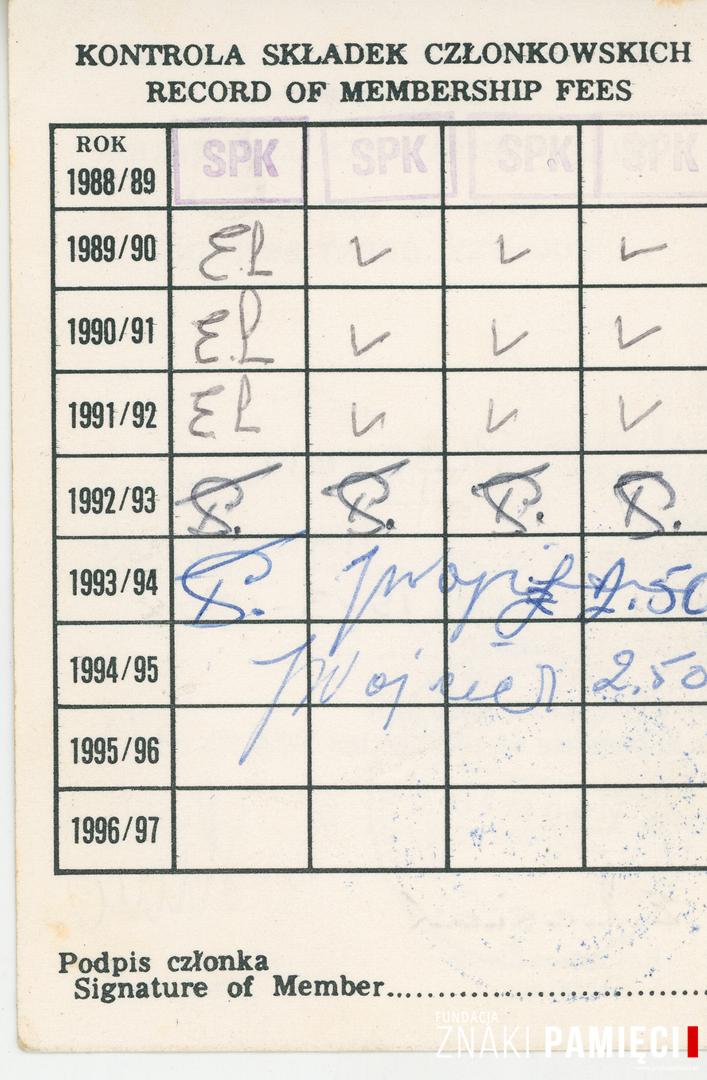 KONTROLA SKŁADEK CZŁONKOWSKICH
RECORD OF MEMBERSHIP FEES
ROK
1988/89 SPK SPK SPK SPK
1989/90
1990/91
1991/92
1992/93
1993/94 £2.50
1994/95 2.50
1995/96
1996/97
Podpis członka
Signature of Member
FUNDACJA
ZNAKI PAMIĘCI